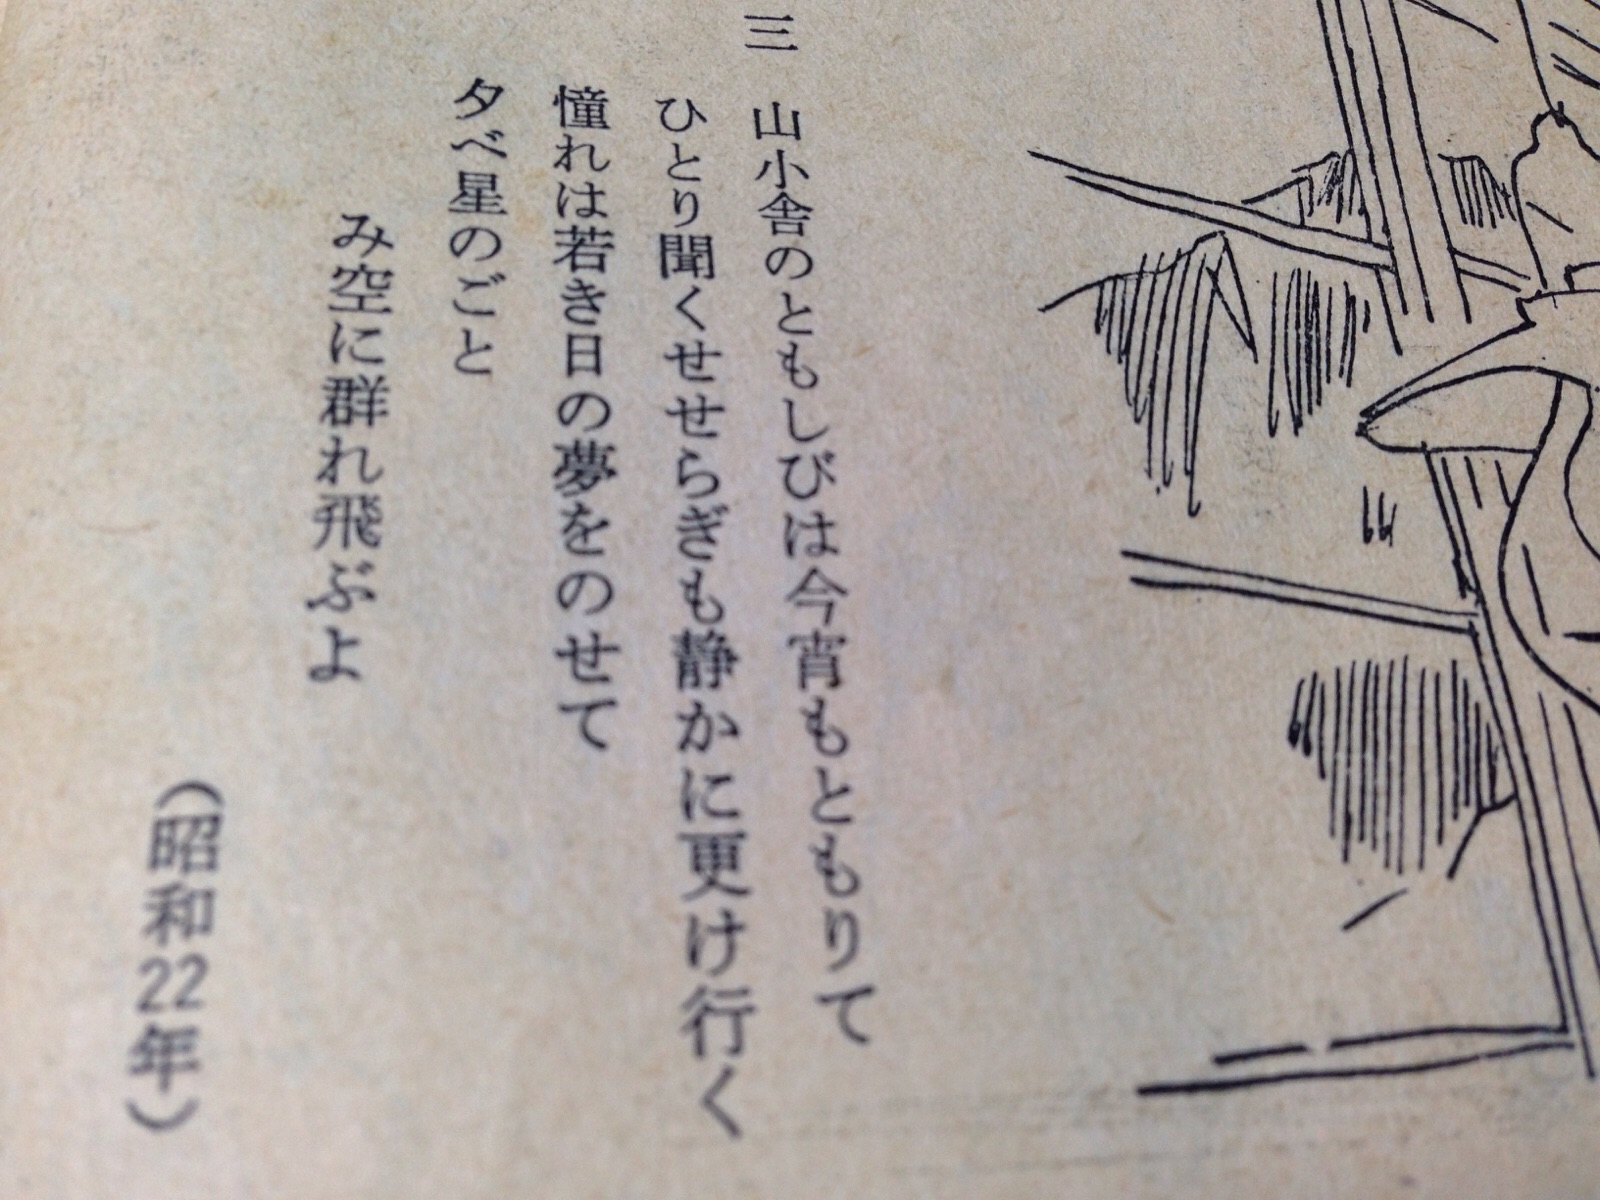 三 山小舎のともしびは今宵もともりて
ひとり聞くせせらぎも静かに更け行く
憧れは若き日の夢をのせて
夕べ星のごと
み空に群れ飛ぶよ
(昭和22年)